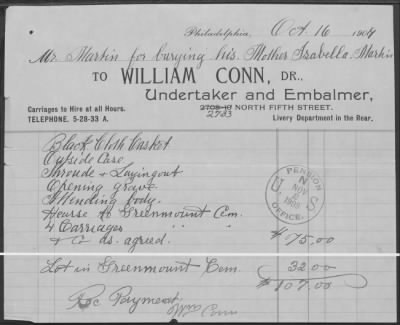 Philadelphia, Oct 16 1909
Mr. Martin for burying his Mother Isabella Martin
TO WILLIAM CONN, DR.,
Undertaker and Embalmer,
NORTH FIFTH STREET.
2733
Carriages to Hire at all Hours.
TELEPHONE. 5-28-33 A.
Livery Department in the Rear.
Black Cloth Casket
Outside Case
Shroude & Layingout
Opening grave
Attending body.
Hearse to Greenmount Cem.
4 Carriages " "
& C as agreed. $75.00
Lot in Greenmount Cem 32.00
$107.00
Rec Payment
Wm Conn
PENSION
U S
NOV
OFFICE.